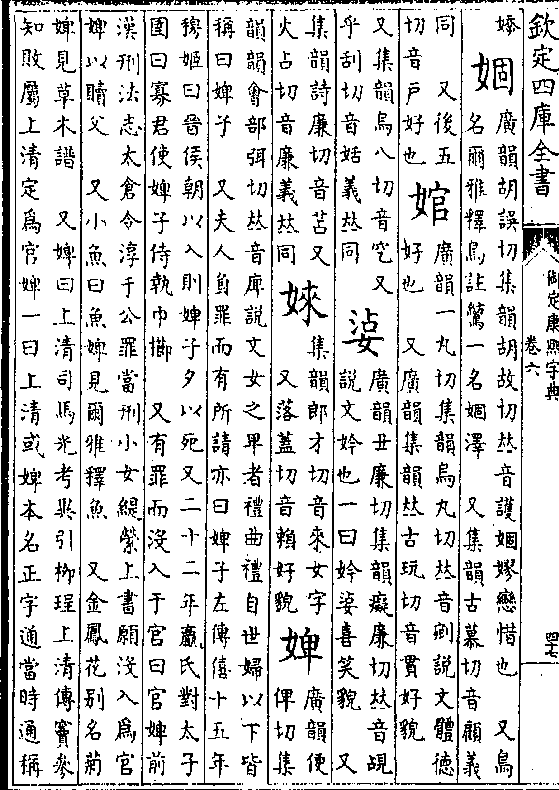 欽定四庫全書
御定康熙字典
卷六
四七
嫪
婟
廣韻胡誤切集韻胡故切𠀤音護婟嫪戀惜也 又鳥
名爾雅釋鳥註鶭一名婟澤 又集韻古慕切音顧義
同 又後五
切音戶好也
婠
廣韻一丸切集韻烏丸切𠀤音剜說文體德
好也 又廣韻集韻𠀤古玩切音貫好貌
又集韻烏八切音穵又
乎刮切音姡義𠀤同
廣韻丑廉切集韻癡廉切𠀤音覘
說文妗也一曰妗 喜笑貌 又
集韻詩廉切音苫又
火占切音廉義𠀤同
婡
集韻郎才切音來女字
又落蓋切音賴好貌
婢
廣韻便
俾切集
韻韻會部弭切𠀤音庳說文女之卑者禮曲禮自世婦以下皆
稱曰婢子 又夫人負罪而有所請亦曰婢子左傳僖十五年
穆姬曰晉侯朝以入則婢子夕以死又二十二年嬴氏對太子
圉曰寡君使婢子侍執巾櫛 又有罪而沒入于官曰官婢前
漢刑法志太倉令淳于公罪當刑小女緹縈上書願沒入為官
婢以贖父 又小魚曰魚婢見爾雅釋魚 又金鳳花别名菊
婢見草木譜 又婢曰上清司馬光考異引柳珵上清傳竇參
知敗屬上清定為官婢一曰上清或婢本名正字通當時通稱